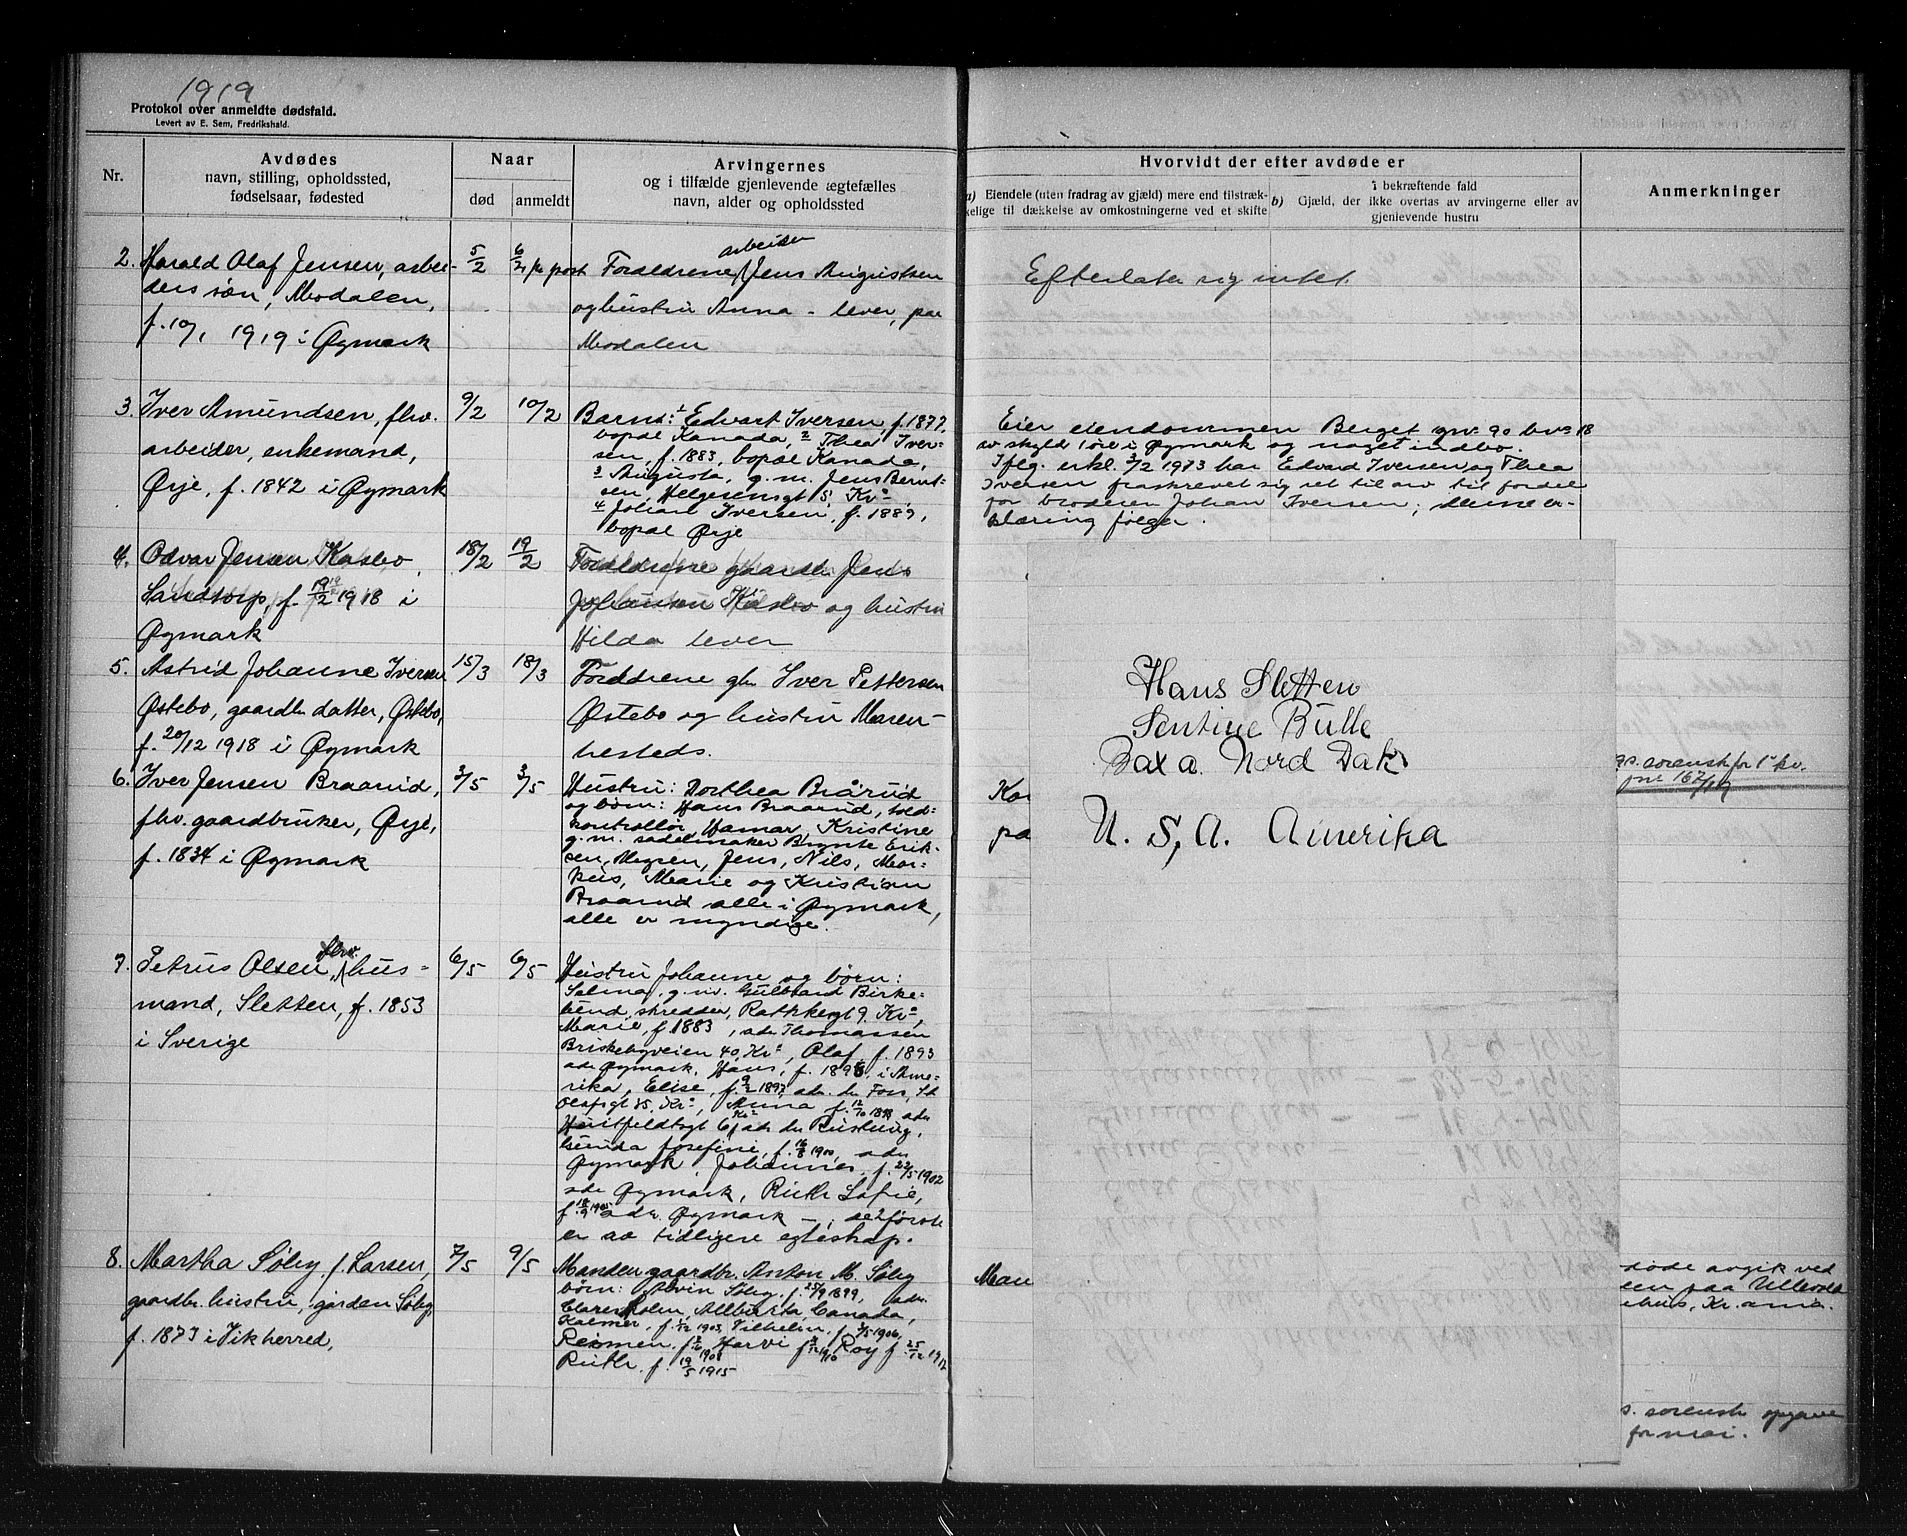 1919
Protokol over anmeldte dødsfald.
Levert av E. Sem, Fredrikshald.
Nr.
Avdødes
navn, stilling, opholdssted,
fødselsaar, fødested
Naar
død
anmeldt
Arvingernes
og i tilfælde gjenlevende ægtefælles
navn, alder og opholdssted
2. Harald Olaf Jensen, arbei-
ders søn, Modalen,
f. 10/1 1919 i Øymark
5/2
6/2 pr post
arbeider
Forældrene Jens Augustsen
og hustru Anna - lever, paa
Modalen
3. Iver Amundsen, fhv.
arbeider, enkemand,
Ørje, f. 1842 i Øymark
9/2
10/2
Barn: 1 Edvart Iversen, f. 1877,
bopæl Kanada, 2 Thea Iver-
sen, f. 1883, bopæl Kanada,
3 Augusta, g. m. Jens Bernt-
sen, Helgesensgt 5, Kr.a
4 Johan Iversen, f. 1889,
bopæl Ørje
4. Odvar Jensen Kaslbo,
Sandtorp, f. 19/2 1918 i
Øymark
18/2
19/2
Forældrene gaardbr. Jens
Johansen og hustru
Hilda lever
5. Astrid Johanne Iversen
Østebø, gaardbr. datter, Østebø,
f. 20/12 1918 i Øymark
15/3
18/3
Forældrene gbr Iver Pettersen
Østebø og hustru Maren -
besteds.
6. Iver Jensen Braarud,
fhv. gaardbruker, Ørje,
f. 1834 i Øymark
3/5
3/5
Hustru: Dorthea Brårud
og børn: Hans Braarud, told-
kontrollør, Hamar, Kristine
g. m. sadelmaker Brynte Erik-
sen, Mysen, Jens, Nils, Mar-
kus, Marie og Kristian
Braarud alle i Øymark,
alle er myndige.
7. Petrus Olsen, fhv. hus-
mand, Sletten, f. 1853
i Sverige
6/5
6/5
Hustru Johanne og børn:
Selma, g. m. Gulbrand Birke-
lund, skredder, Rathkesgt 9. Kr.a,
Marie, f. 1883, adr. Thomassen
Briskebyveien 40, Kr.a, Olaf, f. 1893
adr Øymark, Hans, f. 1896 i Ame-
rika, Elise, f. 9/2 1897, adr. hr. Foss, St.
Olafsgt 35, Kr.a, Anna f. 12/10 1898 adr
Huitfeldtsgt 6 Kr.a
Gunda Josefine, f. 16/8 1900, adr
Øymark, Johannes, f. 22/5 1902
adr Øymark, Ruth Sofie,
f. 18/9 1905 adr. Øymark -, de 2 første
er av tidligere egteskap.
8. Martha Søby f. Larsen,
gaardbr. hustru, gården Søby,
f. 1873 i Vikherred,
7/5
9/5
Manden gaardbr. Anton M. Søby
børn: Alvin Søby, f. 25/9 1899, adr.
Claresholm, Allberta, Canada,
Kalmer, f. 1/12 1903, Vilhelm, f. 3/5 1906,
Reimen, f. 1908 Harvi f. 1910 Roy f. 25/12 1912
Ruth, f. 19/5 1915
Hvorvidt der efter avdøde er
a) Eiendele (uten fradrag av gjæld) mere end tilstræk-
kelige til dækkelse av omkostningerne ved et skifte
b)
i bekræftende fald
Gjæld, der ikke overtas av arvingerne eller av
gjenlevende hustru
Anmerkninger
Efterlater sig intet.
Eier eiendommen Berget gnr. 90 bnr 18
av skyld 1 øre i Øymark og noget indbo.
Iflg. erkl. 3/2 1973 har Edvard Iversen og Thea
Iversen fraskrevet sig ret til arv til fordel
for broderen Johan Iversen; denne er-
klæring følger.
Hans Sletten
Sentine Butte
Bax a. Nord Dak
U. S, A. Amerika
Kar
pa
sorenskr for 1ste kv.
jnr 167/19
Man
døde avgik ved
den paa Ullevold
ehus, Kr.ania.
s. sorensk opgave
for mai.